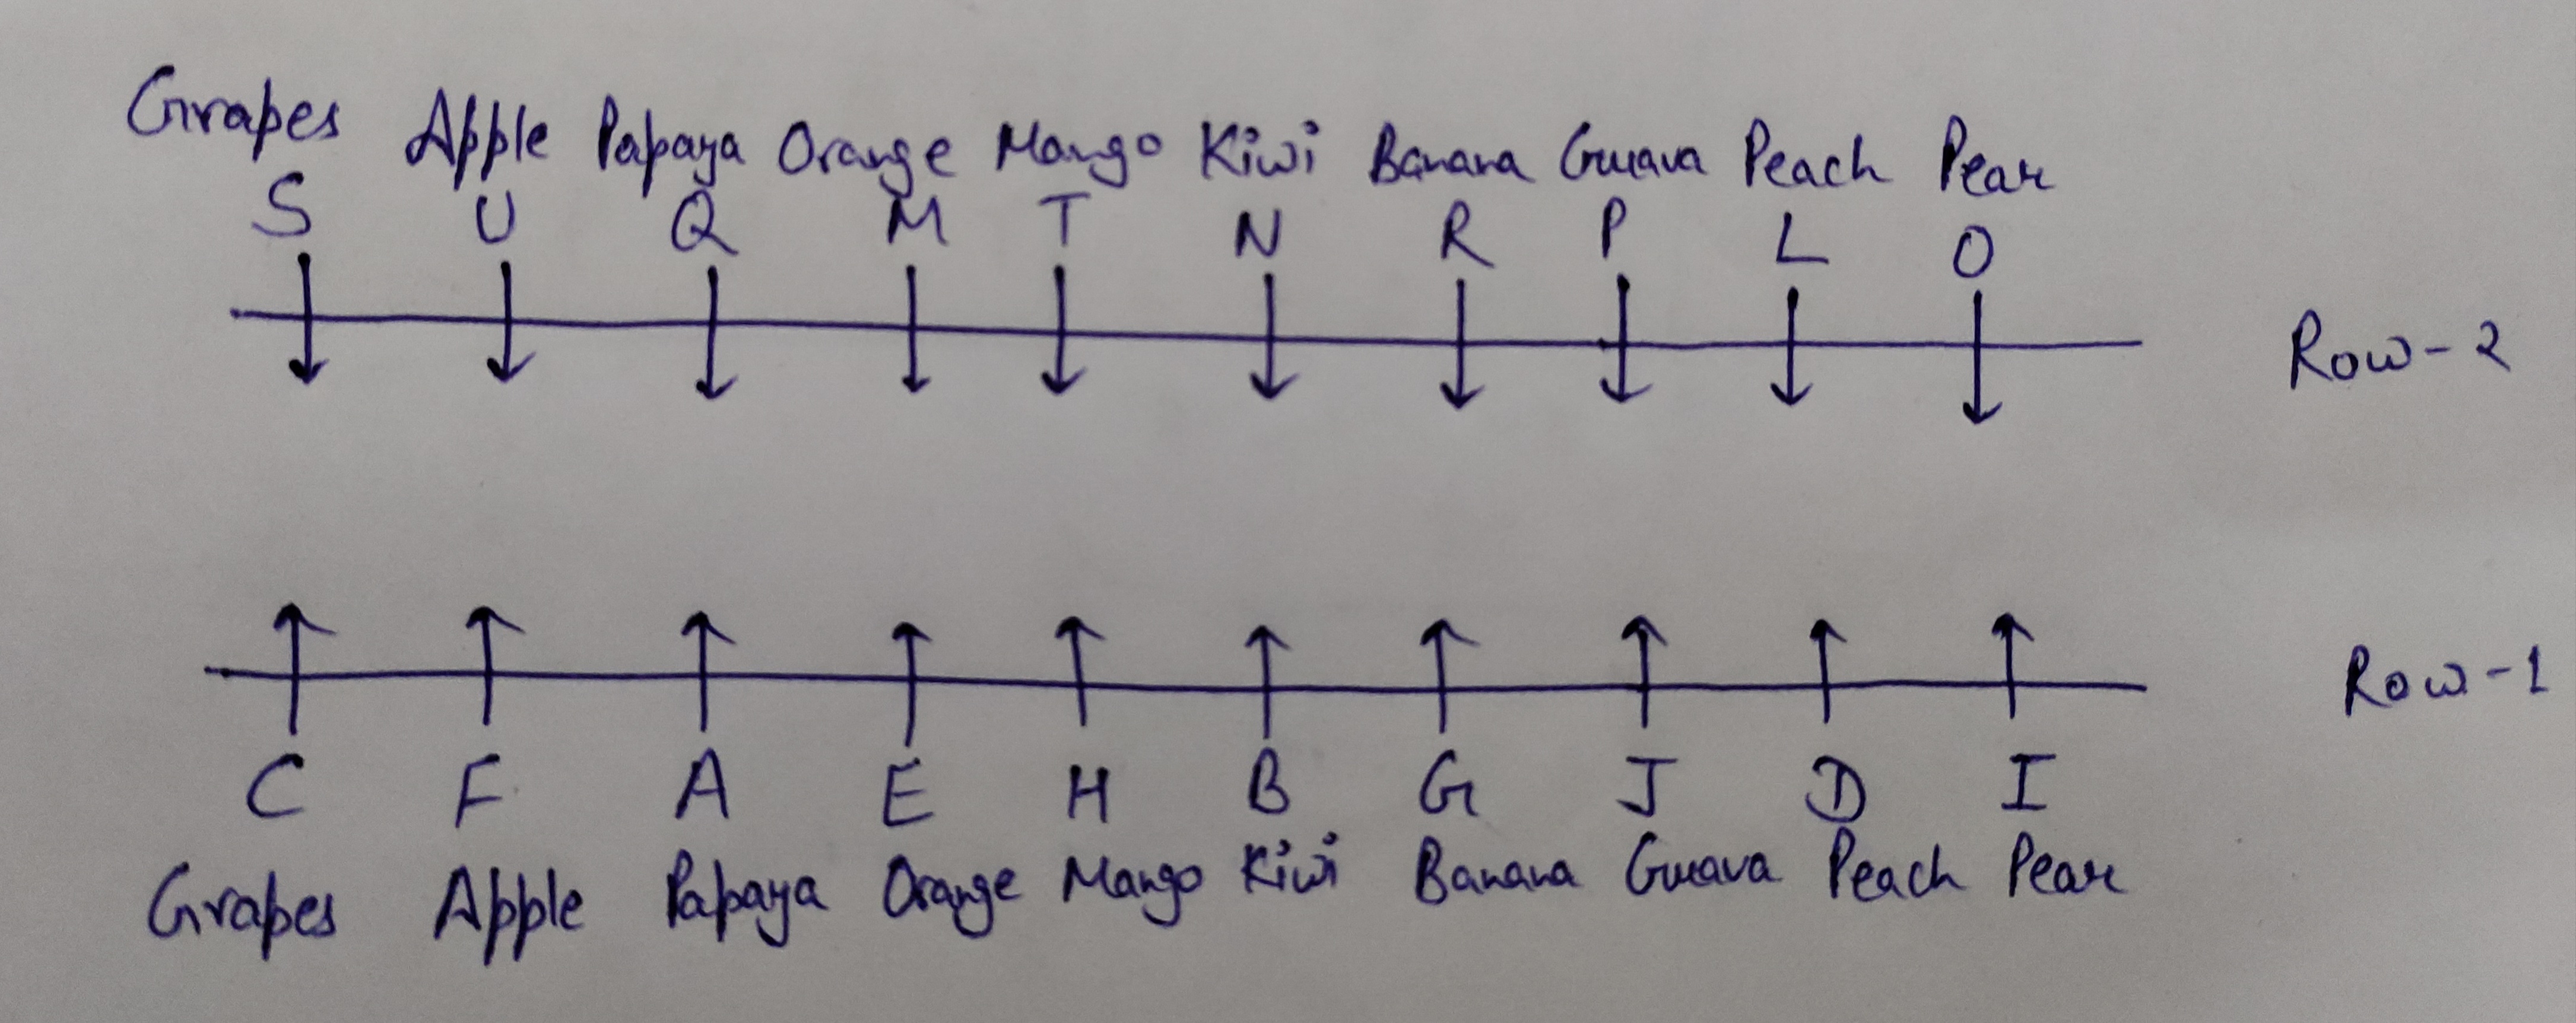 Grapes Apple Papaya Orange Mango Kiwi Banana Guava Peach Pear
S U Q M T N R P L O
Row-2
C F A E H B G J D I
Row-1
Grapes Apple Papaya Orange Mango Kiwi Banana Guava Peach Pear